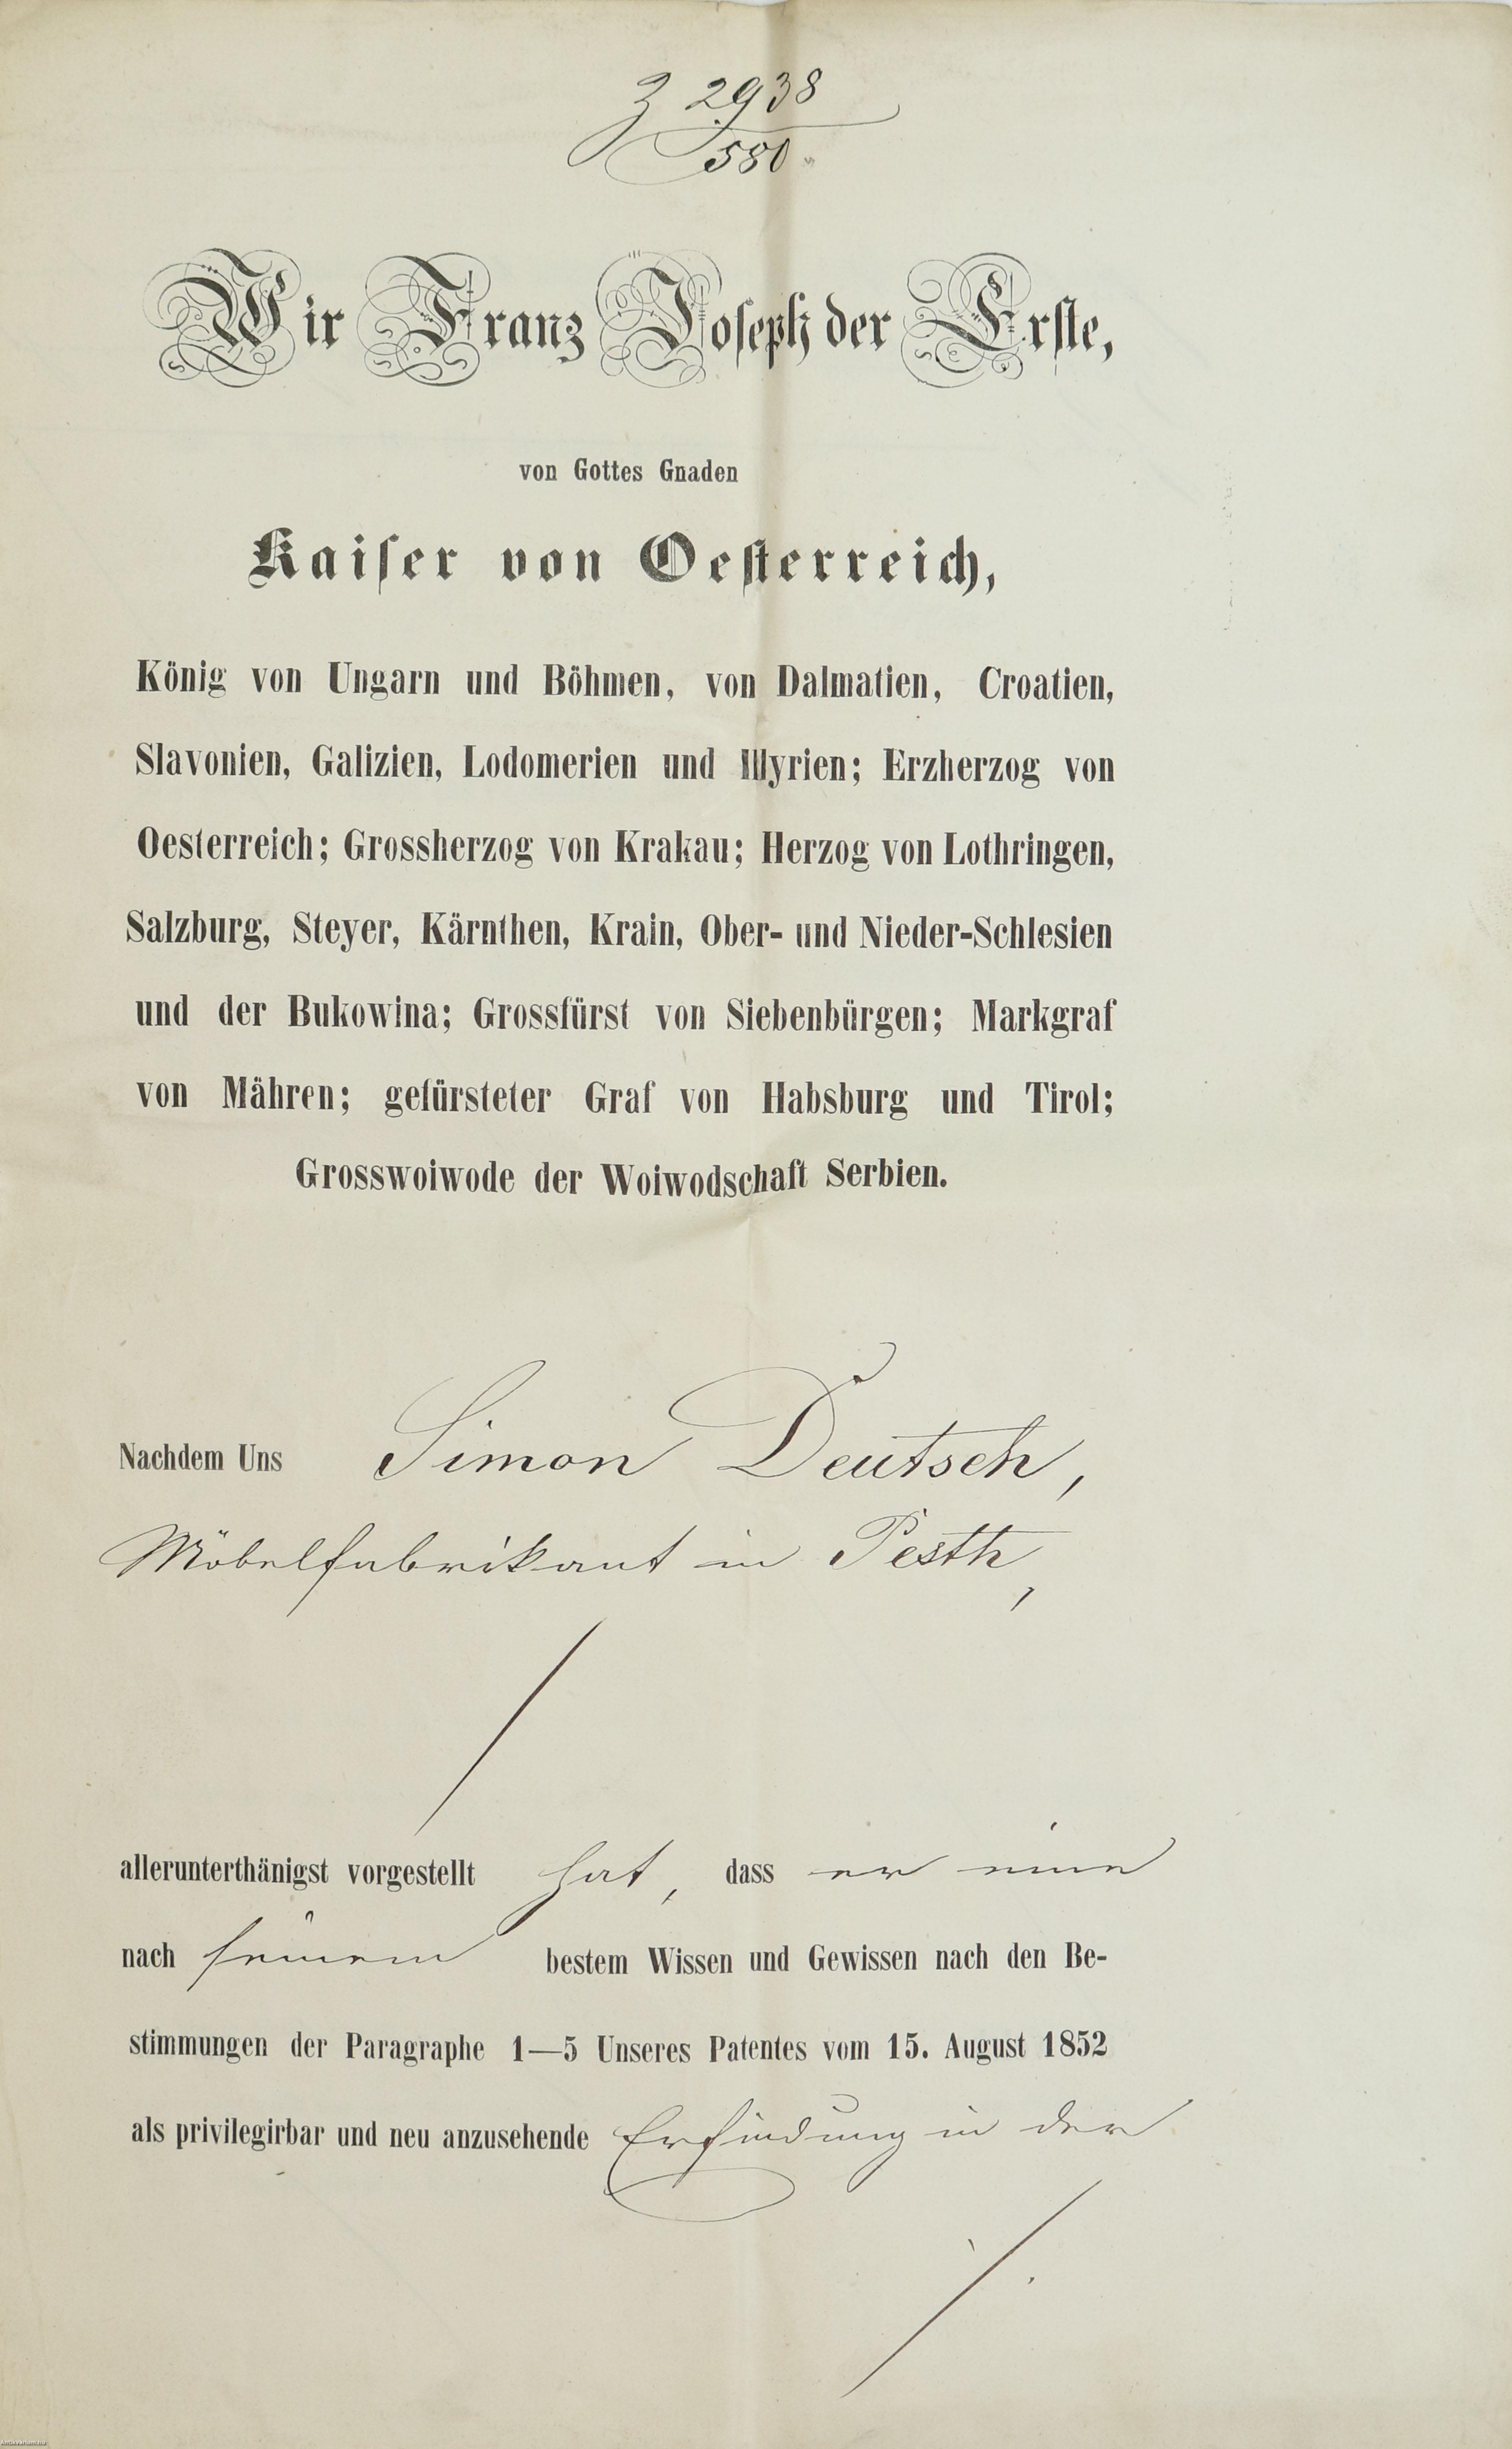 Z 2938
580
Wir Franz Joseph der Erste,
von Gottes Gnaden
Kaiser von Oesterreich,
König von Ungarn und Böhmen, von Dalmatien, Croatien,
Slavonien, Galizien, Lodomerien und Illyrien; Erzherzog von
Oesterreich; Grossherzog von Krakau; Herzog von Lothringen,
Salzburg, Steyer, Kärnthen, Krain, Ober- und Nieder-Schlesien
und der Bukowina; Grossfürst von Siebenbürgen; Markgraf
von Mähren; gefürsteter Graf von Habsburg und Tirol;
Grosswoiwode der Woiwodschaft Serbien.
Nachdem Uns Simon Deutsch,
Möbelfabrikant in Pesth,
allerunterthänigst vorgestellt hat, dass er eine
nach seinem bestem Wissen und Gewissen nach den Be-
stimmungen der Paragraphe 1—5 Unseres Patentes vom 15. August 1852
als privilegirbar und neu anzusehende Erfindung in der